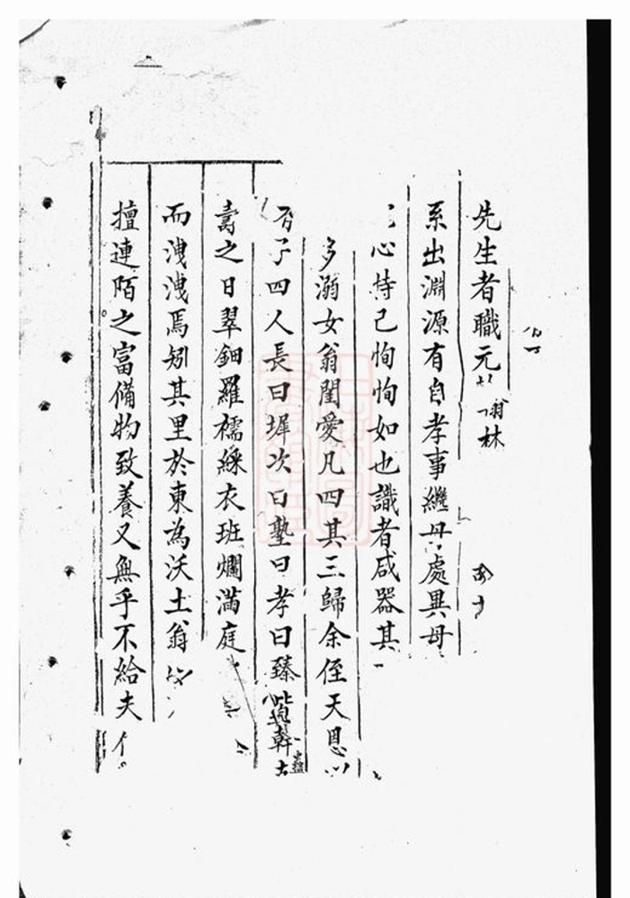 先生者職元翰林
系出淵源有自孝事繼母處異母
心持己恂恂如也識者咸器其
多溺女翁閨愛凡四其三歸余侄天恩以
子四人長曰墀次曰塾曰孝曰臻皆幹蠱
壽之日翠鈿羅襦綵衣班斕滿庭
而洩洩焉矧其里於東為沃土翁
擅連陌之富備物致養又無乎不給夫